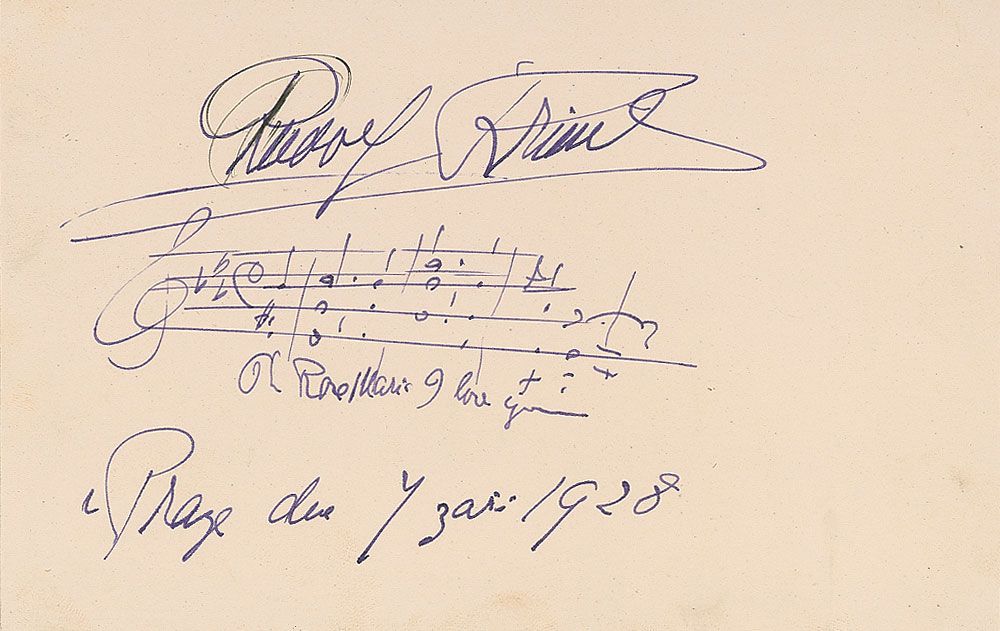 Rudolf Friml
Oh Rose Marie I love you
v Praze dne 7 zaří 1928